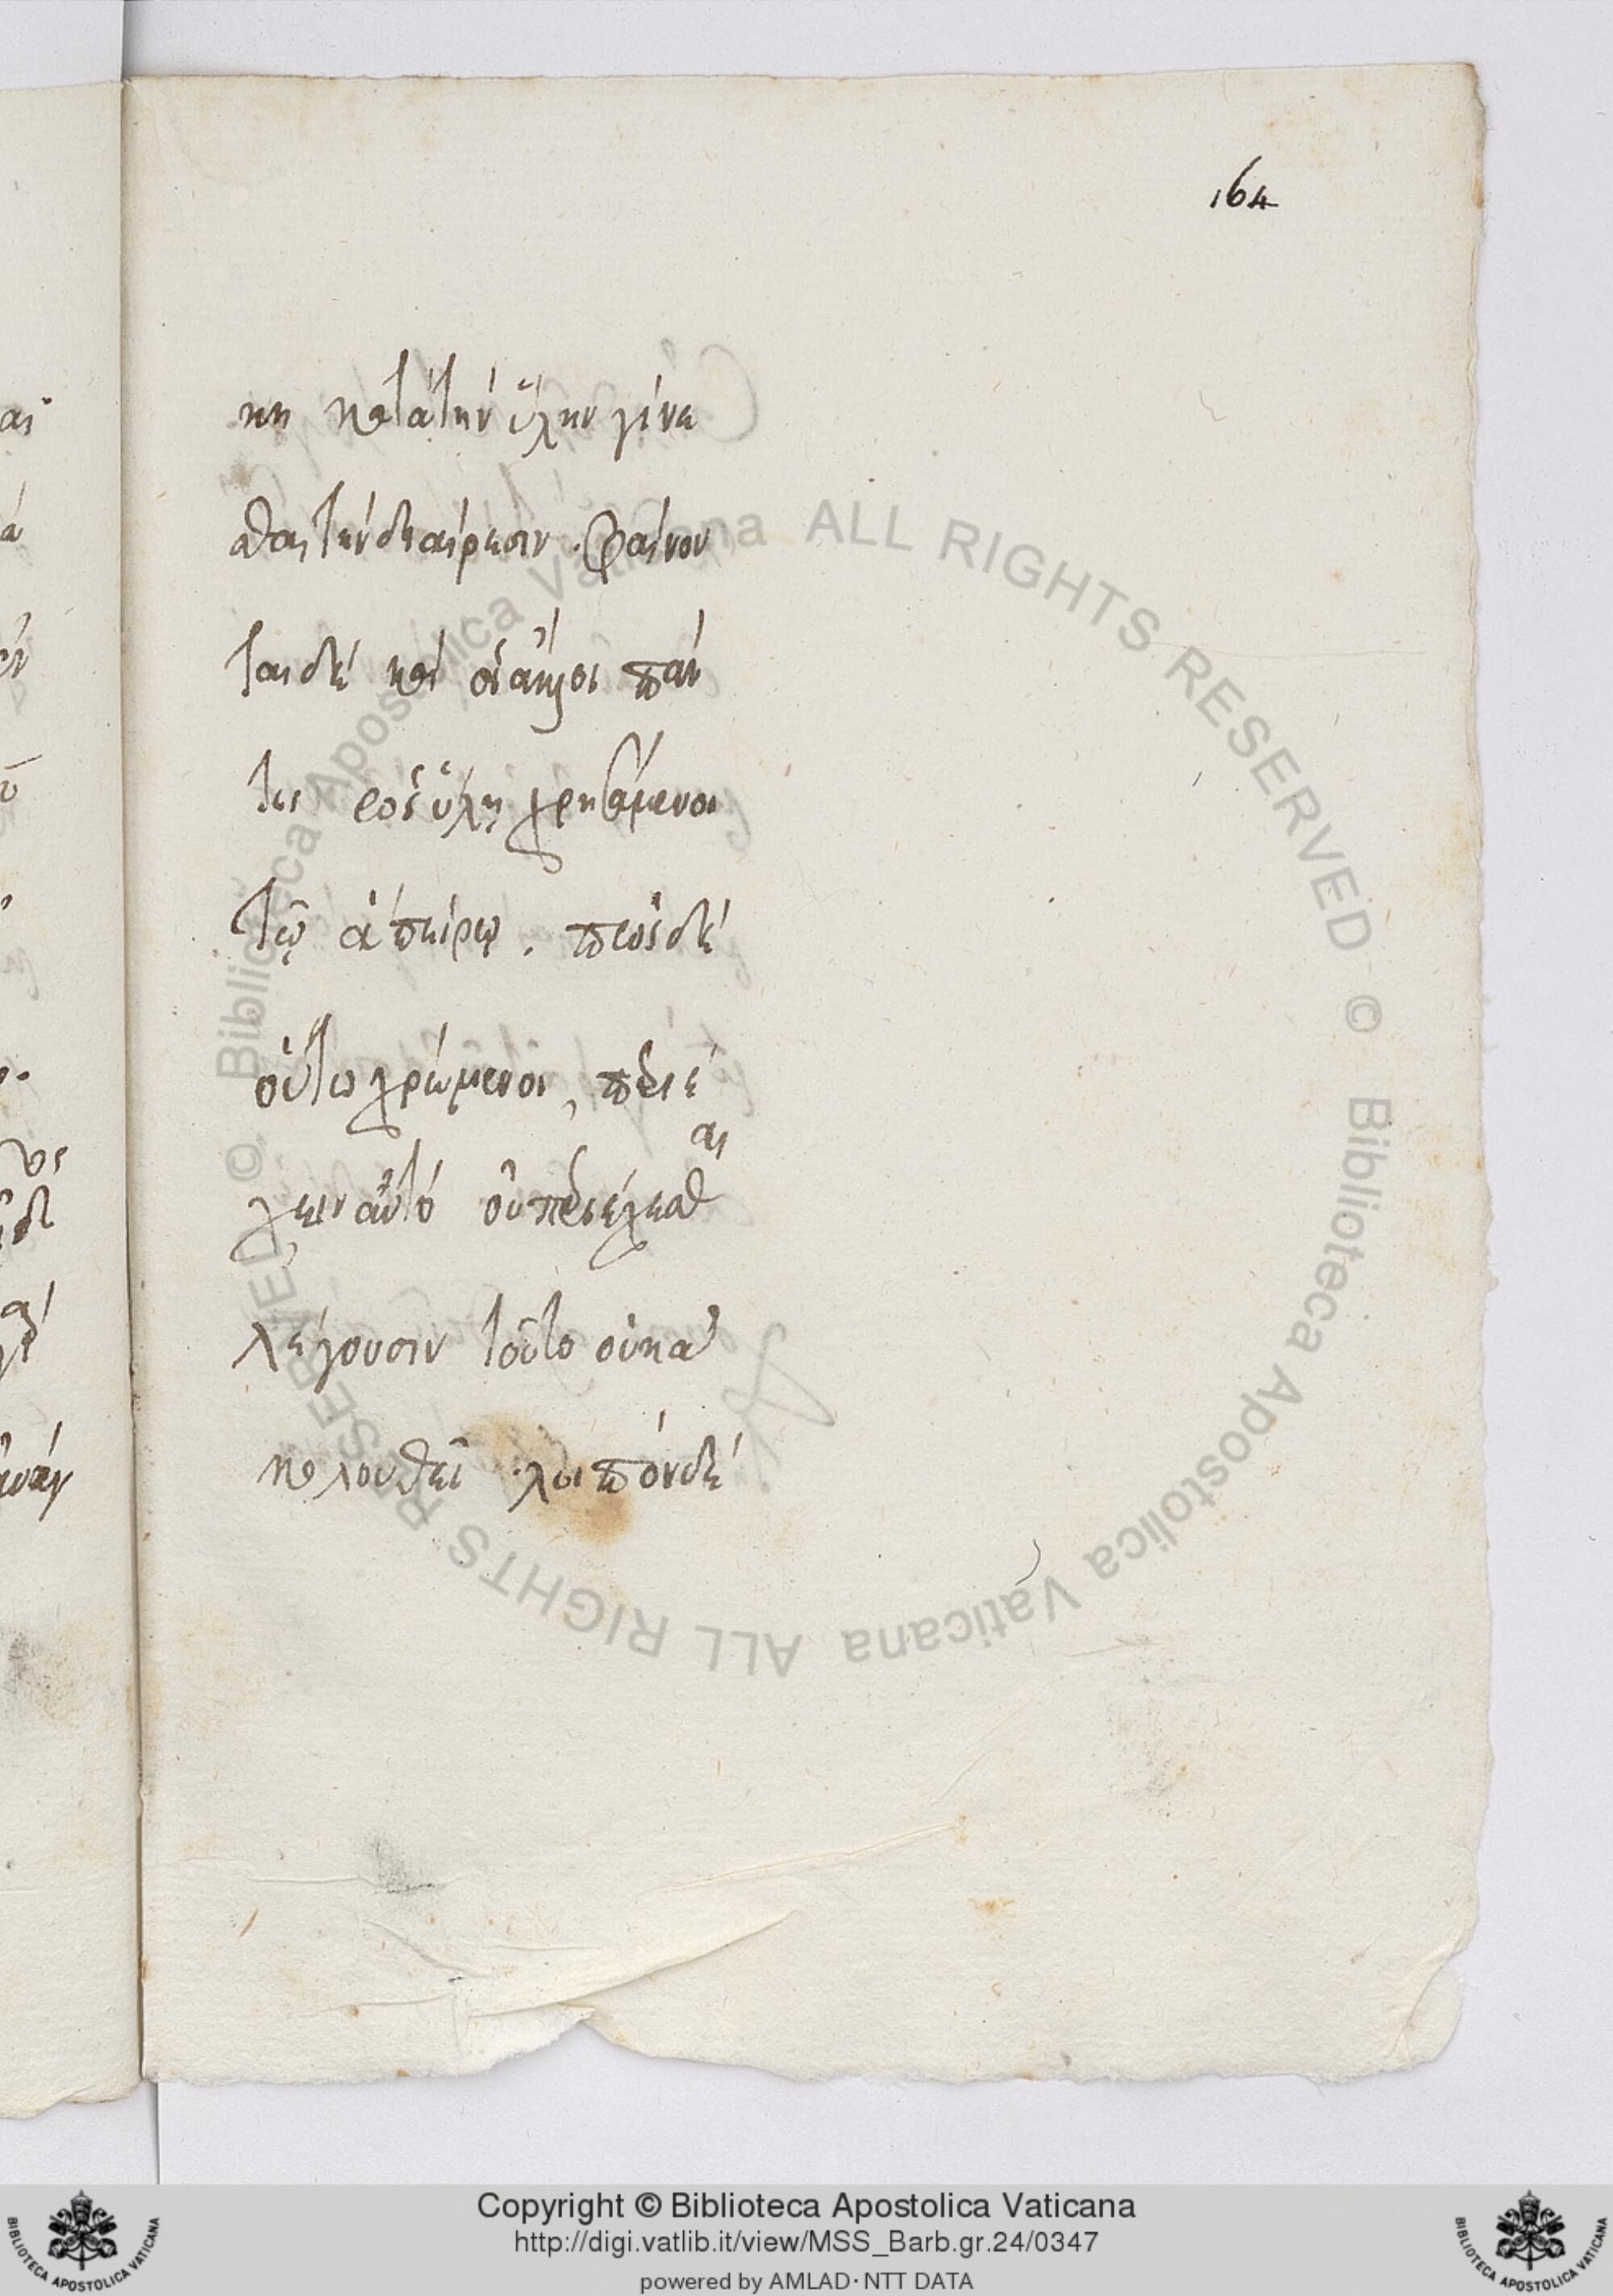 164
κη κατὰ τὴν ὕλην γίνε
σθαι τὴν διαίρεσιν. Φαίνον
ται δὲ καὶ οἱ ἄλλοι πάν
τες ὡς ὕλῃ χρησάμενοι
τῷ ἀπείρῳ. πρὸς δὲ
οὕτω χρώμενοι, περιέ
χειν αὐτὸ οὐ περιέχεσθαι
λέγουσιν τοῦτο οὐκ ἀ
κολουθεῖ. λοιπὸν δὲ
© Biblioteca Apostolica Vaticana ALL RIGHTS RESERVED © Biblioteca Apostolica Vaticana ALL RIGHTS RESERVED
Copyright © Biblioteca Apostolica Vaticana
http://digi.vatlib.it/view/MSS_Barb.gr.24/0347
powered by AMLAD · NTT DATA
BIBLIOTECA APOSTOLICA VATICANA
BIBLIOTECA APOSTOLICA VATICANA